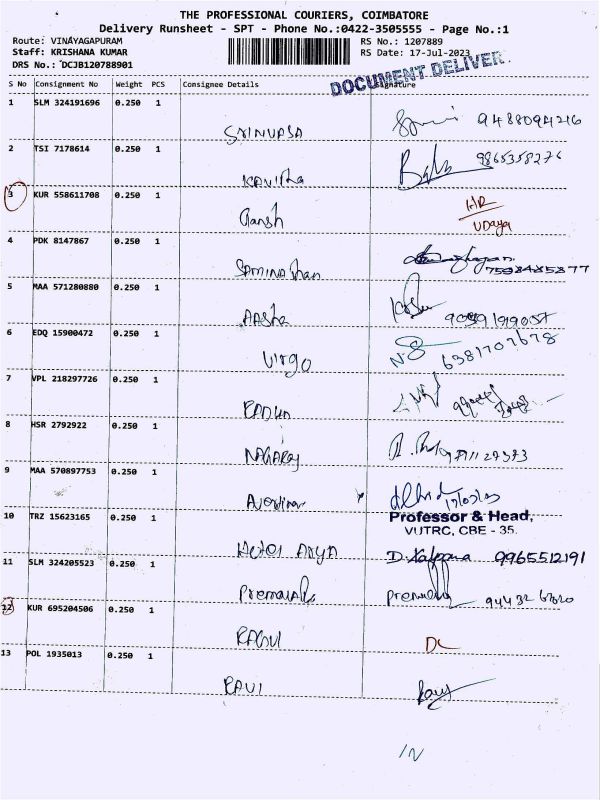 THE PROFESSIONAL COURIERS, COIMBATORE
Delivery Runsheet - SPT - Phone No.:0422-3505555 - Page No.:1
Route: VINAYAGAPURAM
RS No.: 1207889
Staff: KRISHANA KUMAR
RS Date: 17-Jul-2023
DRS No.: DCJB120788901
DOCUMENT DELIVER
S No Consignment No Weight PCS Consignee Details Signature
1 SLM 324191696 0.250 1
SRINIVASA 9488094216
2 TSI 7178614 0.250 1
Kavitha 9865358276
3 KUR 558611708 0.250 1
Gansh HR
Udaya
4 PDK 8147867 0.250 1
Saminathan
5 MAA 571280880 0.250 1
Aasha
6 EDQ 15900472 0.250 1
Virgo 6381707678
7 VPL 218297726 0.250 1
RADHA
8 HSR 2792922 0.250 1
NAGARAJ
9 MAA 570897753 0.250 1
Professor & Head,
VUTRC, CBE - 35.
10 TRZ 15623165 0.250 1
D. Kalpana 9965512191
11 SLM 324205523 0.250 1
Premalatha
12 KUR 695204506 0.250 1
RAGUL DL
13 POL 1935013 0.250 1
RAVI Ravi